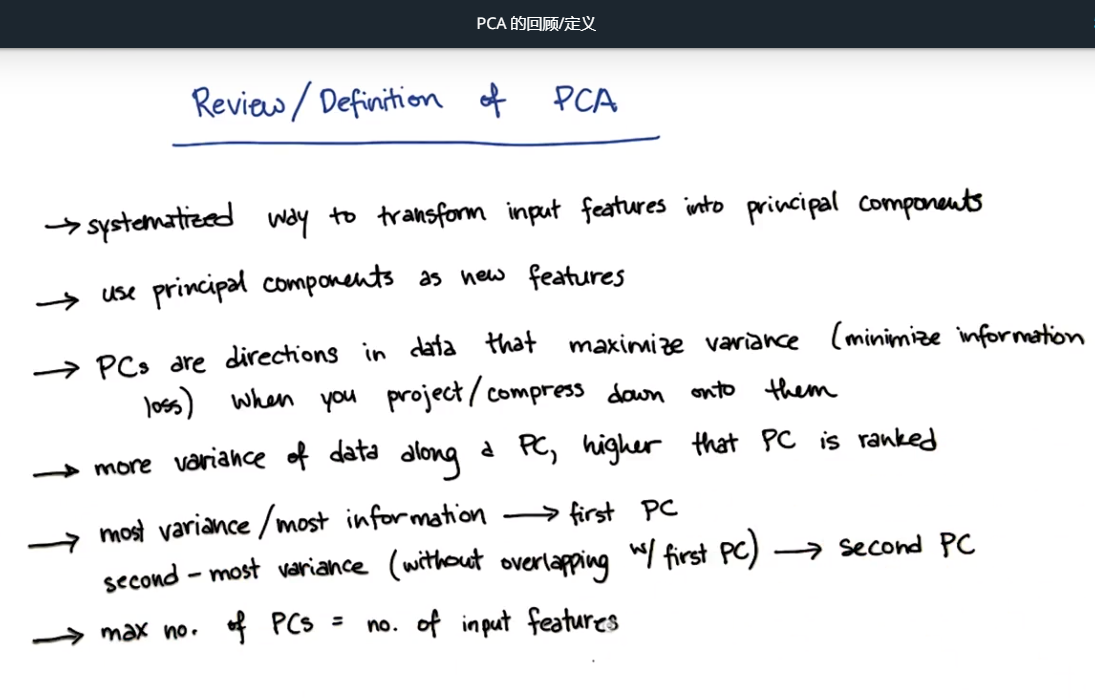 PCA 的回顾/定义
Review/Definition of PCA
→ systematized way to transform input features into principal components
→ use principal components as new features
→ PCs are directions in data that maximize variance (minimize information
loss) when you project/compress down onto them
→ more variance of data along a PC, higher that PC is ranked
→ most variance/most information → first PC
second-most variance (without overlapping w/ first PC) → second PC
→ max no. of PCs = no. of input features